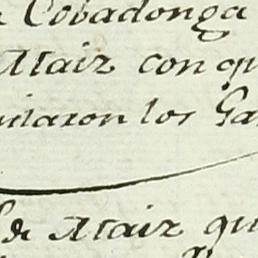 Cobadonga
Ataiz con qu
ularon los Ga
de Ataiz qu